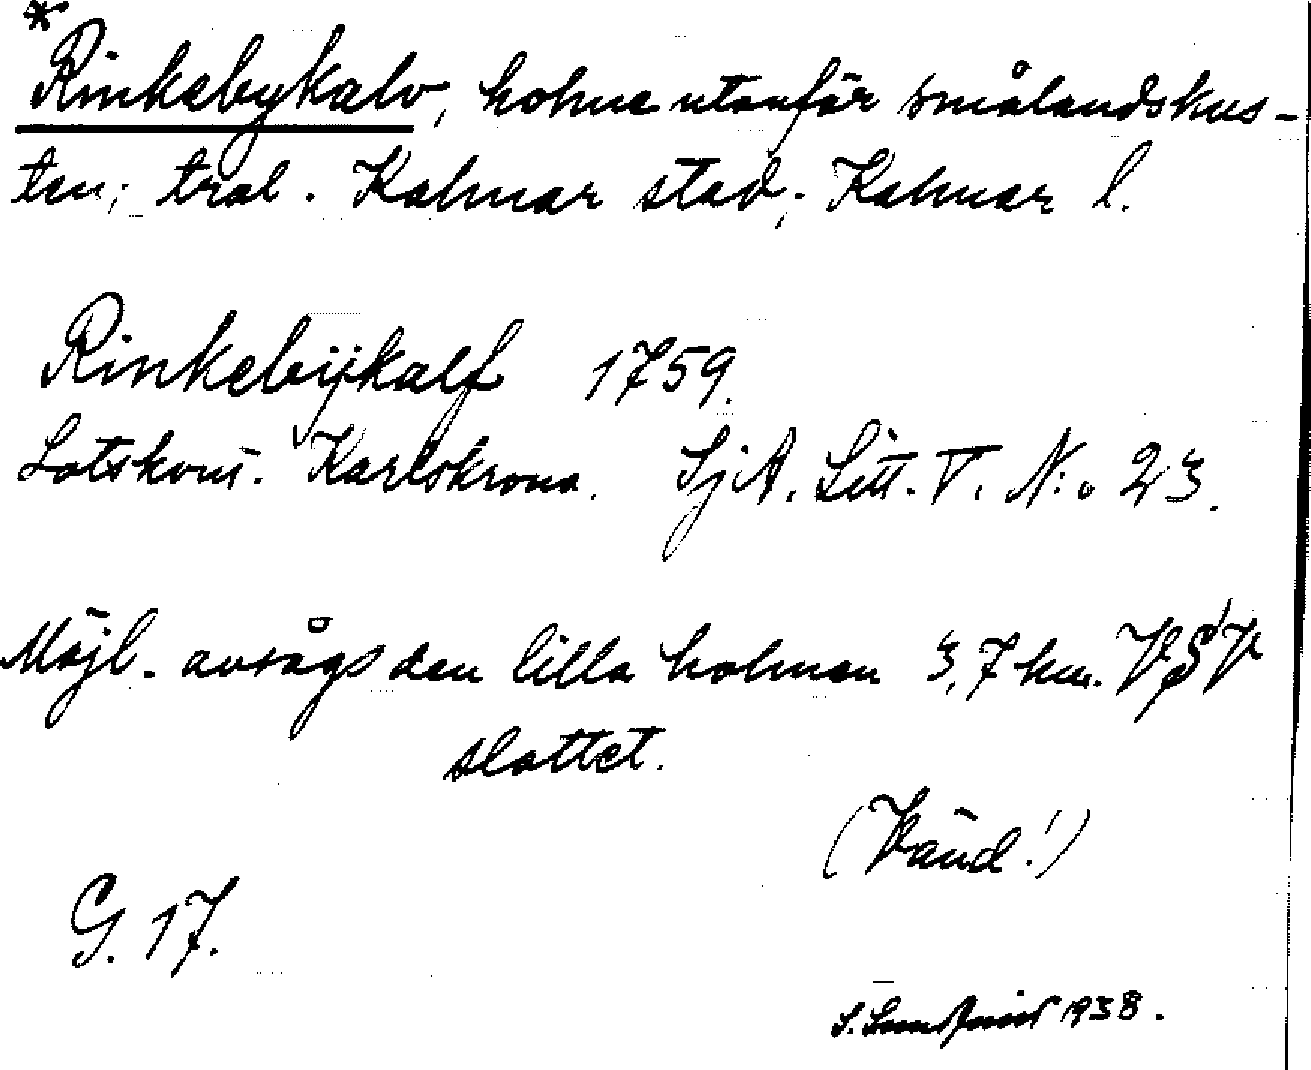 *Rinkebykalv, holme utanför smålandskus-
ten; tral. Kalmar stad; Kalmar l.
Rinkebijkalf 1759.
Lotskont. Karlskrona. SjA. Litt. V. N:o 23.
Möjl. avsågs den lilla holmen 3,7 km. VSV
slottet.
(Vänd!)
G. 17.
1938.